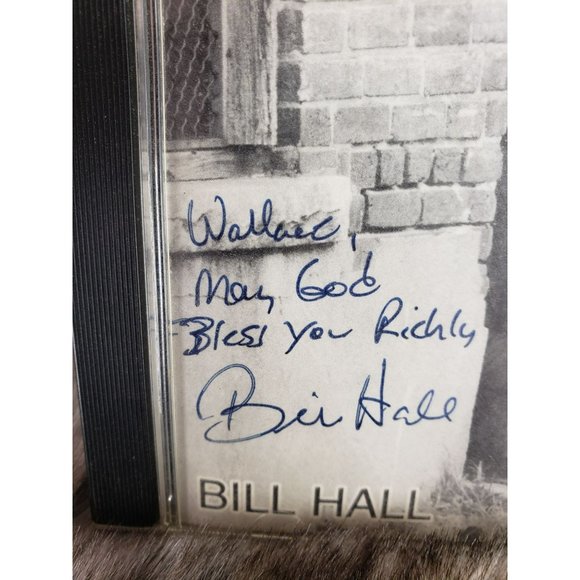 Wallace,
May God
Bless You Richly
Bill Hall
BILL HALL